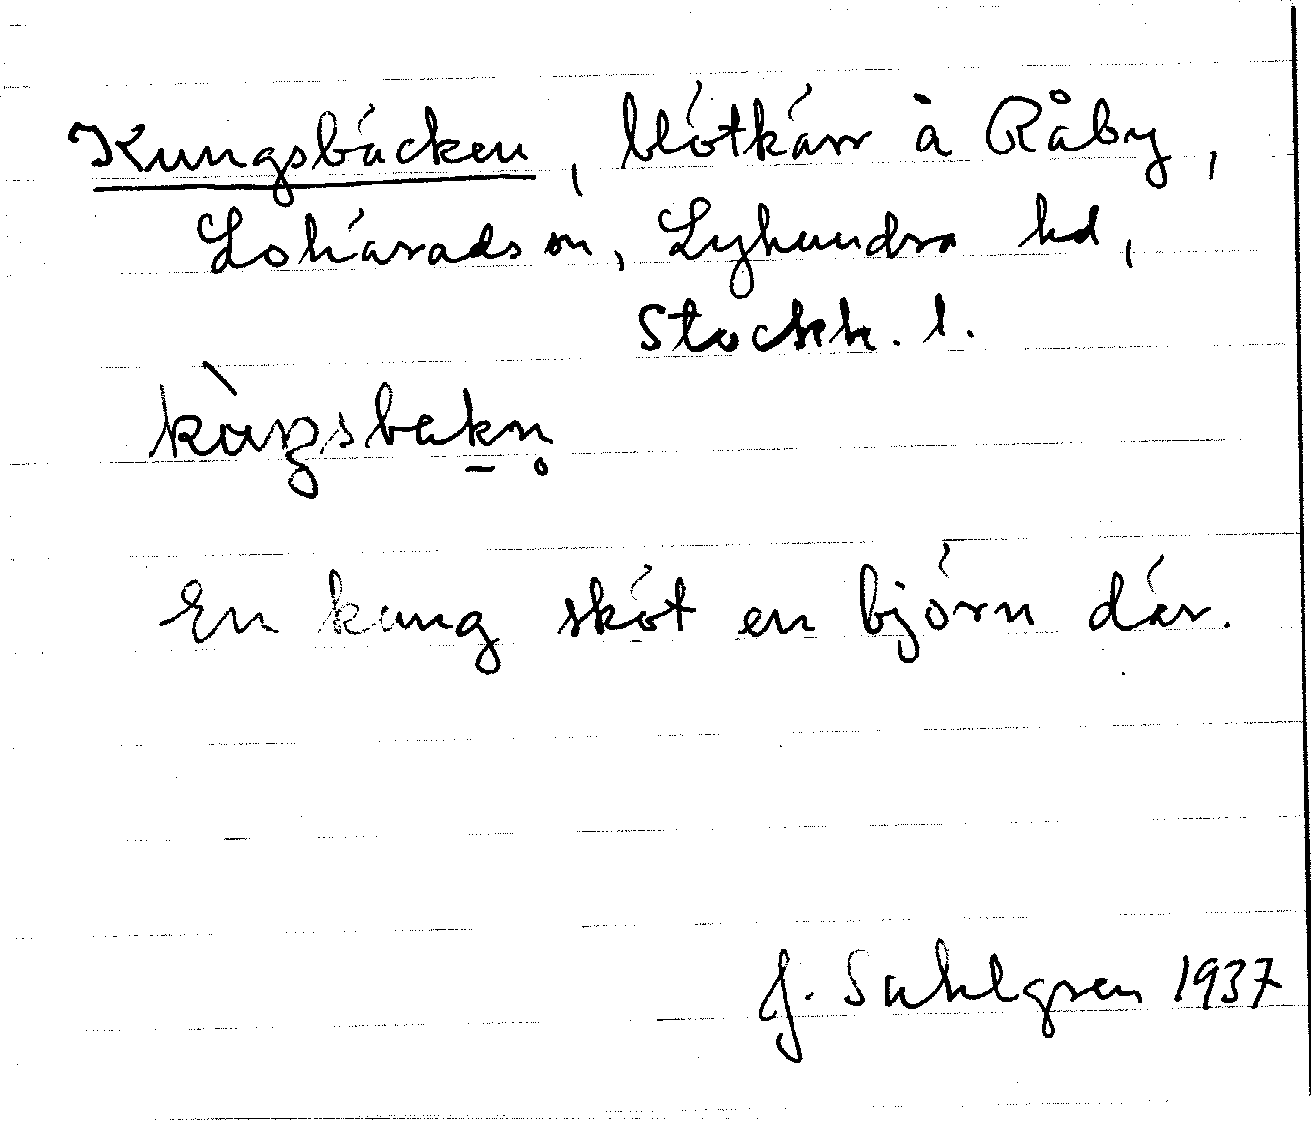 Kungsbäcken, blötkärr å Råby,
Lohärads sn, Lyhundra hd,
Stockh. l.
kùŋsbekn̥
En kung sköt en björn där.
J. Sahlgren 1937